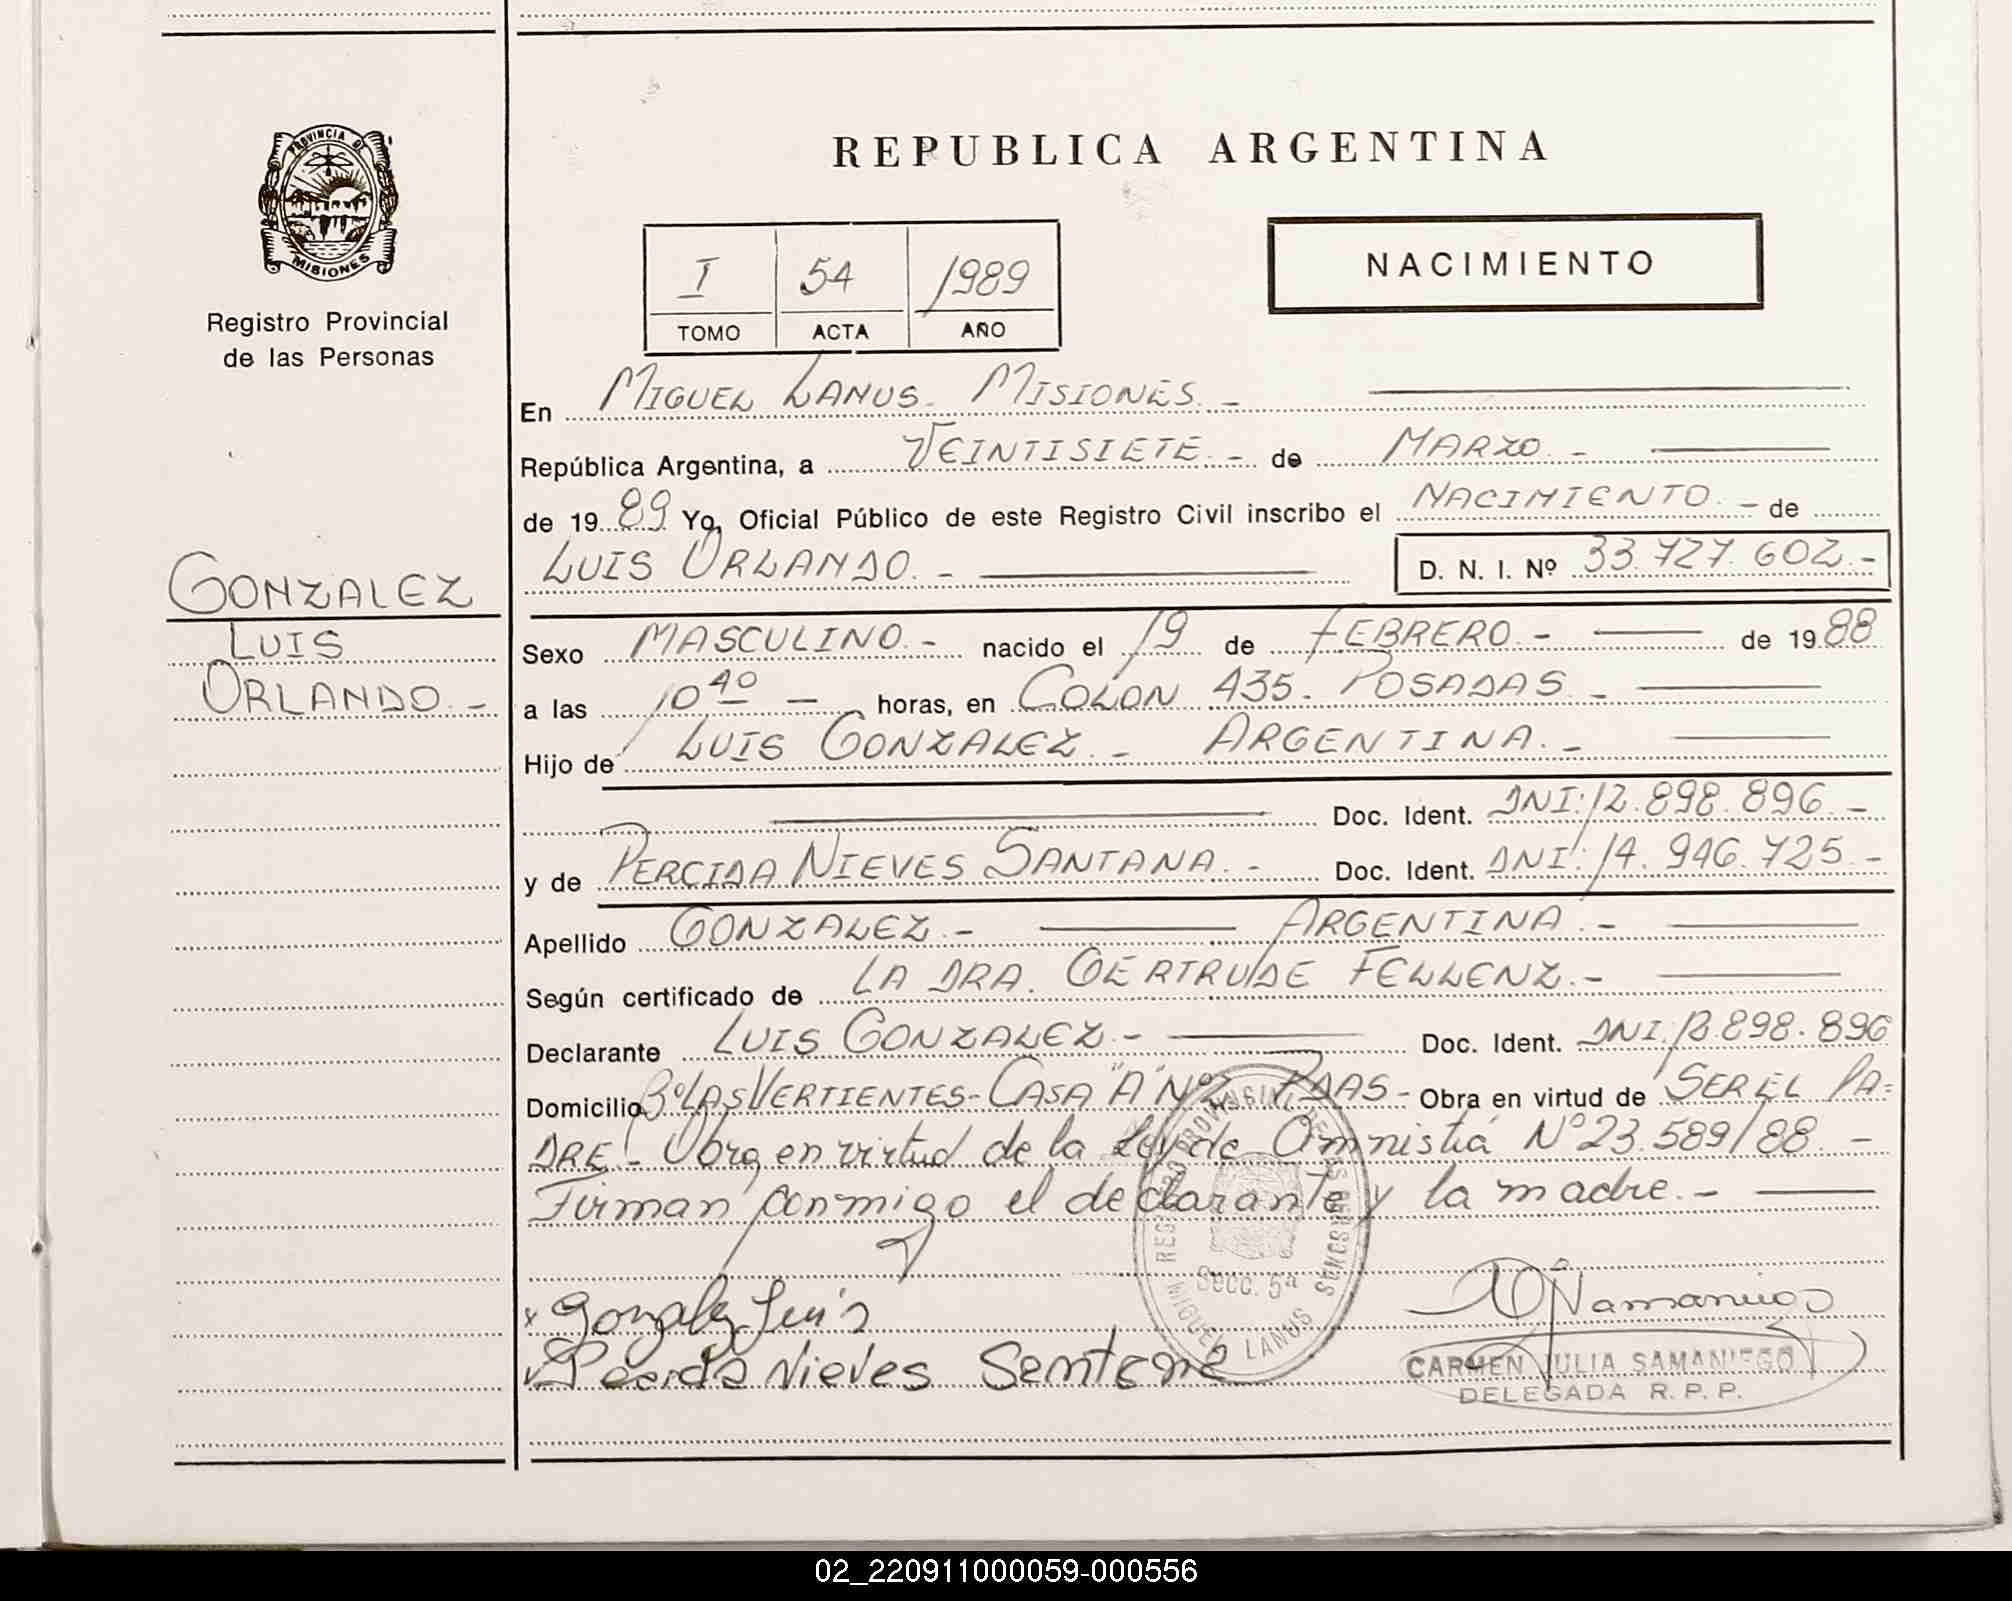 PROVINCIA DE
MISIONES
Registro Provincial
de las Personas
REPUBLICA ARGENTINA
I 54 1989
TOMO ACTA AÑO
NACIMIENTO
En MIGUEL LANUS - MISIONES. -
República Argentina, a VEINTISIETE. - de MARZO. -
de 1989 Yo, Oficial Público de este Registro Civil inscribo el NACIMIENTO. - de
LUIS ORLANDO. - D. N. I. Nº 33.727.602. -
GONZALEZ
LUIS
ORLANDO. -
Sexo MASCULINO. - nacido el 19 de FEBRERO. - de 1988
a las 10 40 - horas, en COLON 435. POSADAS. -
Hijo de LUIS GONZALEZ. - ARGENTINA. -
Doc. Ident. DNI: 12.898.896. -
y de PERCIDA NIEVES SANTANA. - Doc. Ident. DNI: 14.946.725. -
Apellido GONZALEZ. - ARGENTINA. -
Según certificado de LA DRA. GERTRUDE FELLENZ. -
Declarante LUIS GONZALEZ. - Doc. Ident. DNI: 12.898.896
Domicilio Bº LAS VERTIENTES - CASA "A" Nº 2 PDAS - Obra en virtud de SER EL PA=
DRE. - Obra en virtud de la Ley de Amnistía Nº 23.589/88. -
Firman conmigo el declarante y la madre. -
x Gonzalez Luis
x Percida Nieves Santana
Secc. 5ª
MIGUEL LANUS
CARMEN JULIA SAMANIEGO
DELEGADA R. P. P.
02_220911000059-000556